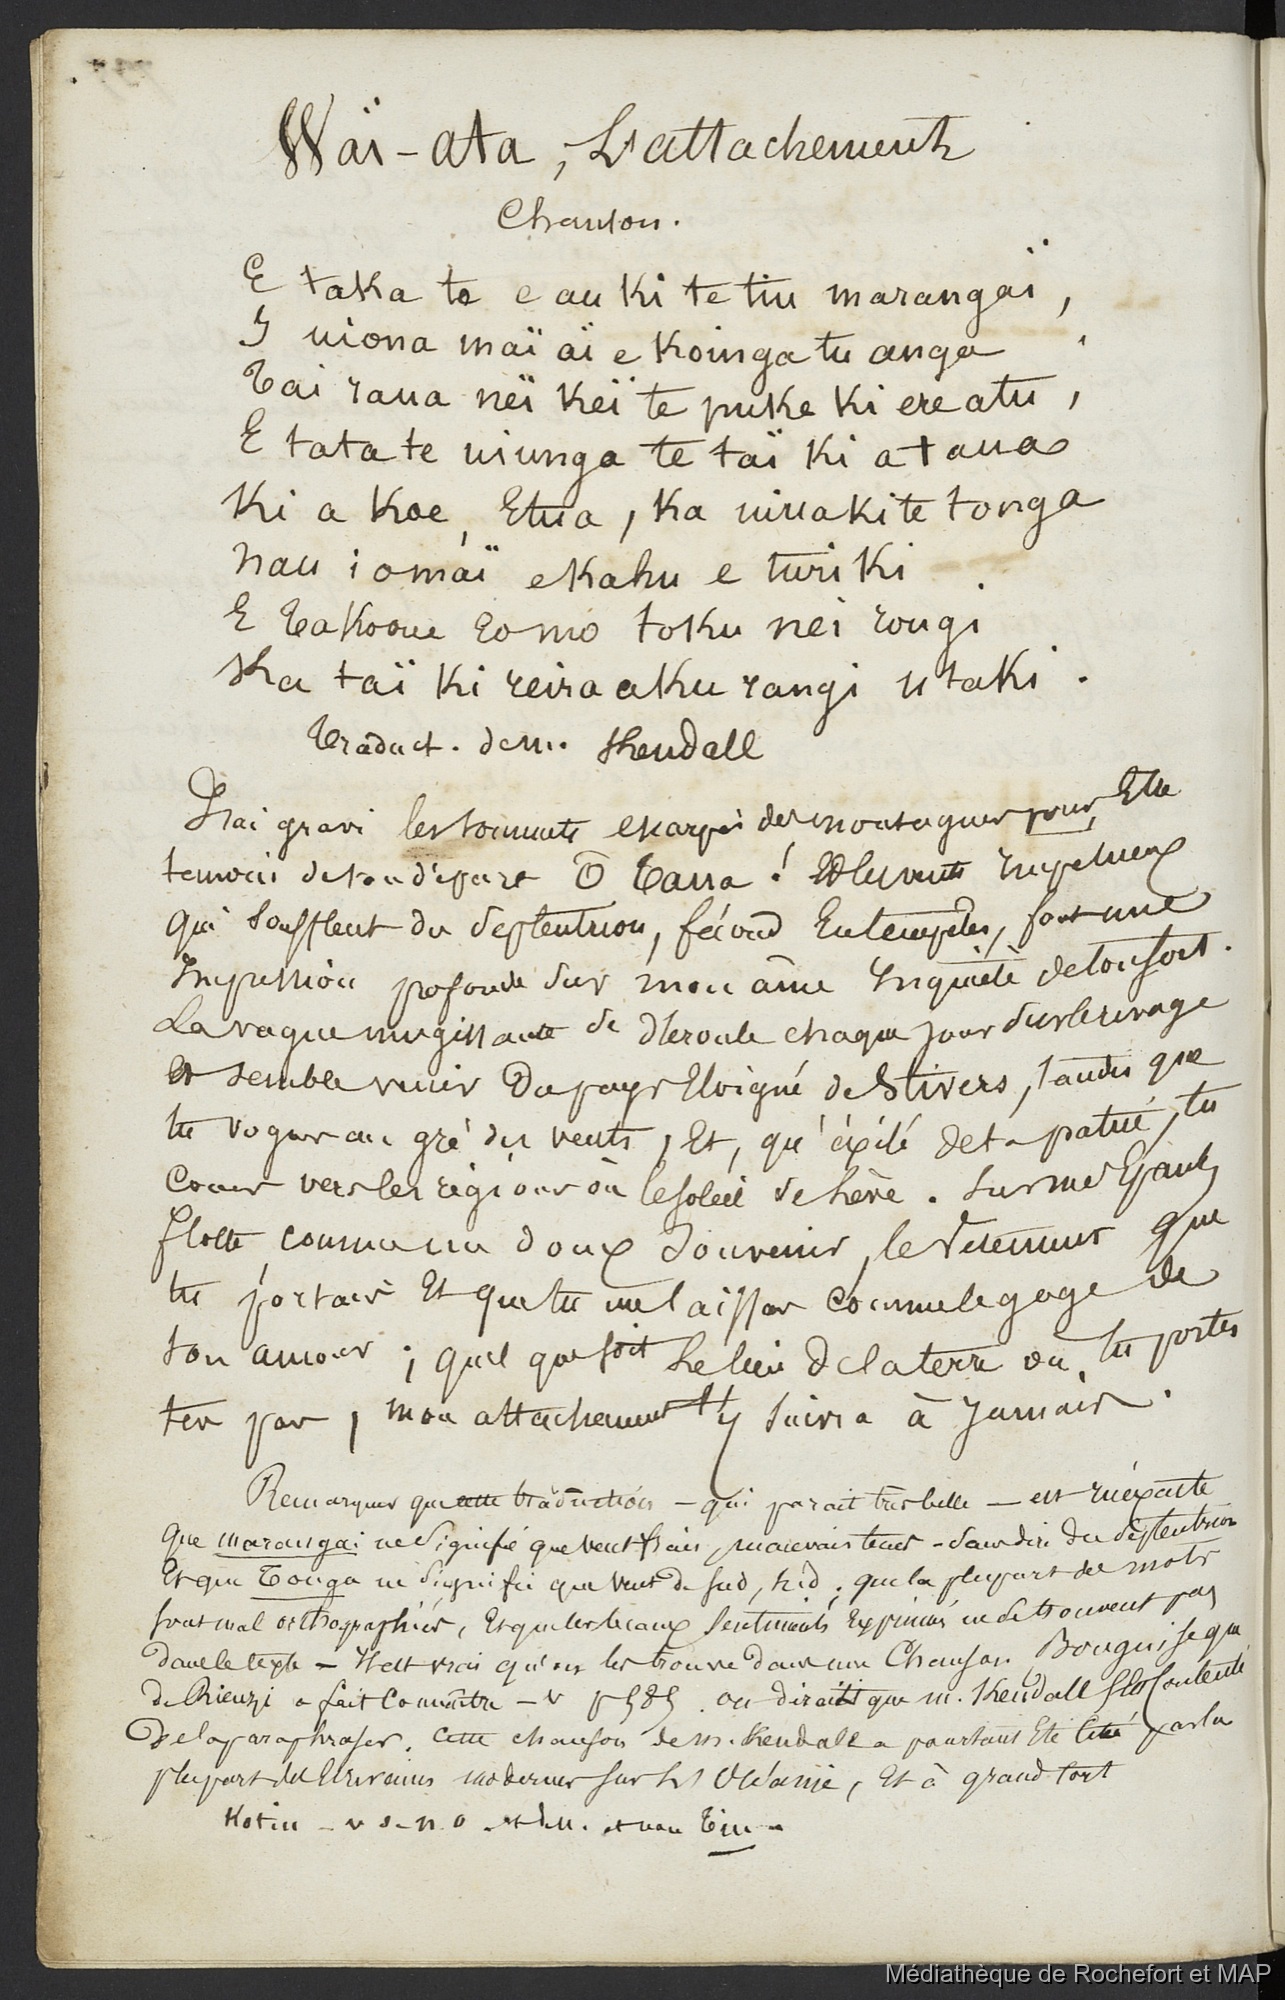 Wäi-ata, L'attachement
Chanson.
E taka te e au ki te tiu marangaï,
I uiona maï aï e koinga tu anga
Tai raua neï keï te puke ki ere atu,
E tata te uiunga te taï ki a taua
Ki a koe, Etua, ka uiua ki te tonga
nau i omaï e kahu e turiki
E takoou e o mo toku nei rongi
Ka taï ki reira aku rangi utaki.
Traduct. de m. Kendall
J'ai gravi les sommets escarpés des montagnes pour Etre
temoin de ton départ Ô Taoua! Et les vents impetueux
qui soufflent du septentrion, fécond En tempêtes, font une
Impression profonde sur mon âme Inquiète de ton sort.
La vague mugissante se déroule chaque jour sur le rivage
Et semble venir Du pays Eloigné de Stivers, tandis que
tu vogues au gré des vents, Et, qu'éxilé de ta patrie, tu
Cours vers les régions où le soleil se lève. Sur mes Epaules
flotte, comme un doux Souvenir, le vetement que
tu portais Et que tu me laissas comme le gage de
ton amour; quel que soit le lieu de la terre où tu portes
tes pas, mon attachement t'y suivra à Jamais.
Remarquer que cette traduction - qui parait très belle - est inéxacte
que marangai ne Signifie que vent frais, mauvais tems - sans dire du septentrion
Et que Tonga ne Signifie que vent de sud, sud; que la plupart des mots
sont mal orthographiés, Et que les beaux sentiments Exprimés ne se trouvent pas
dans le texte - Il est vrai qu'on les trouve dans une Chanson Bouguise que
de Rienzi a fait Connaitre - v p 585. on dirait que m. Kendall s'est Contenté
De la paraphraser. Cette chanson de m. Kendall a pourtant Eté Citée par la
plupart des Ecrivains modernes sur l'Océanie, Et à grand tort
Kotiu - v de n.o et du n. et non Tiu -
Médiathèque de Rochefort et MAP